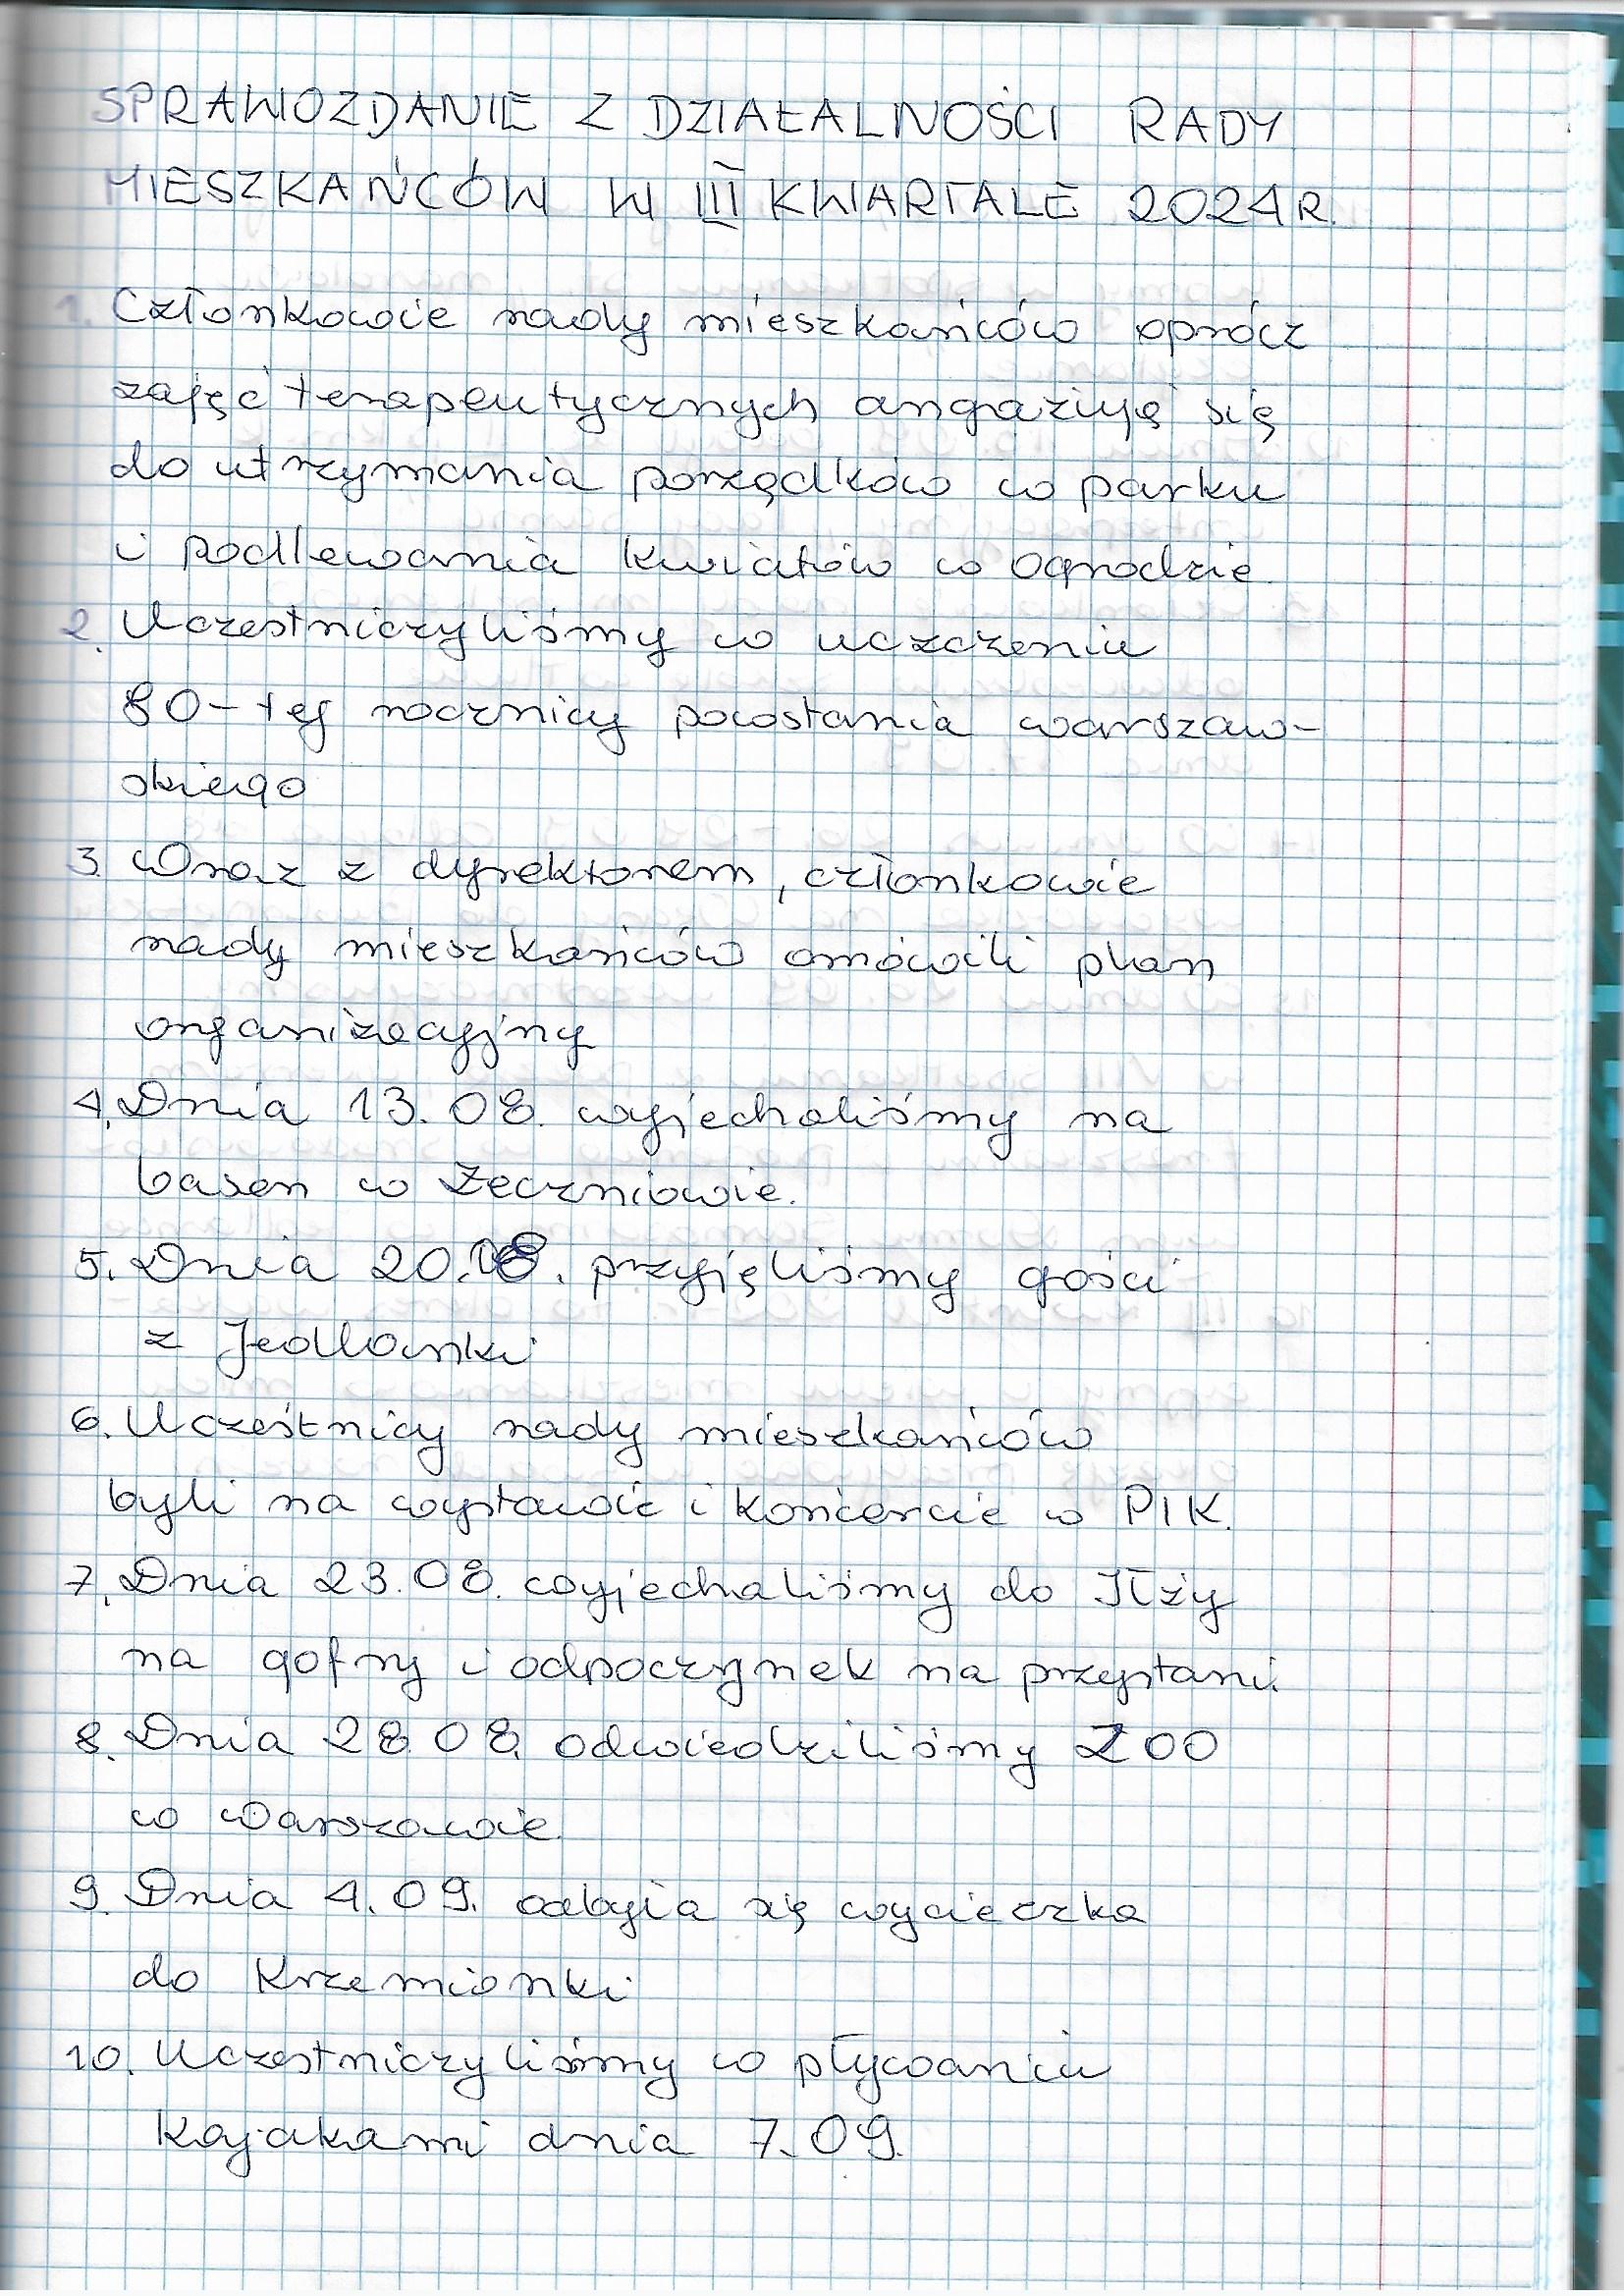 SPRAWOZDANIE Z DZIAŁALNOŚCI RADY
MIESZKAŃCÓW W III KWARTALE 2024 R.
1. Członkowie rady mieszkańców oprócz
zajęć terapeutycznych angażują się
do utrzymania porządków w parku
i podlewania kwiatów w ogrodzie.
2. Uczestniczyliśmy w uczczeniu
80-tej rocznicy powstania warszaw-
skiego
3. Wraz z dyrektorem, członkowie
rady mieszkańców omówili plan
organizacyjny
4. Dnia 13.08. wyjechaliśmy na
basen w Zeczniowie.
5. Dnia 20.08. przyjęliśmy gości
z Jedlanki
6. Uczestnicy rady mieszkańców
byli na wystawie i koncercie w PIK.
7. Dnia 23.08. wyjechaliśmy do Iłży
na gofry i odpoczynek na przystani.
8. Dnia 28.08. odwiedziliśmy ZOO
w Warszawie.
9. Dnia 4.09. odbyła się wycieczka
do Krzemionki
10. Uczestniczyliśmy w pływaniu
Kajakami dnia 7.09.